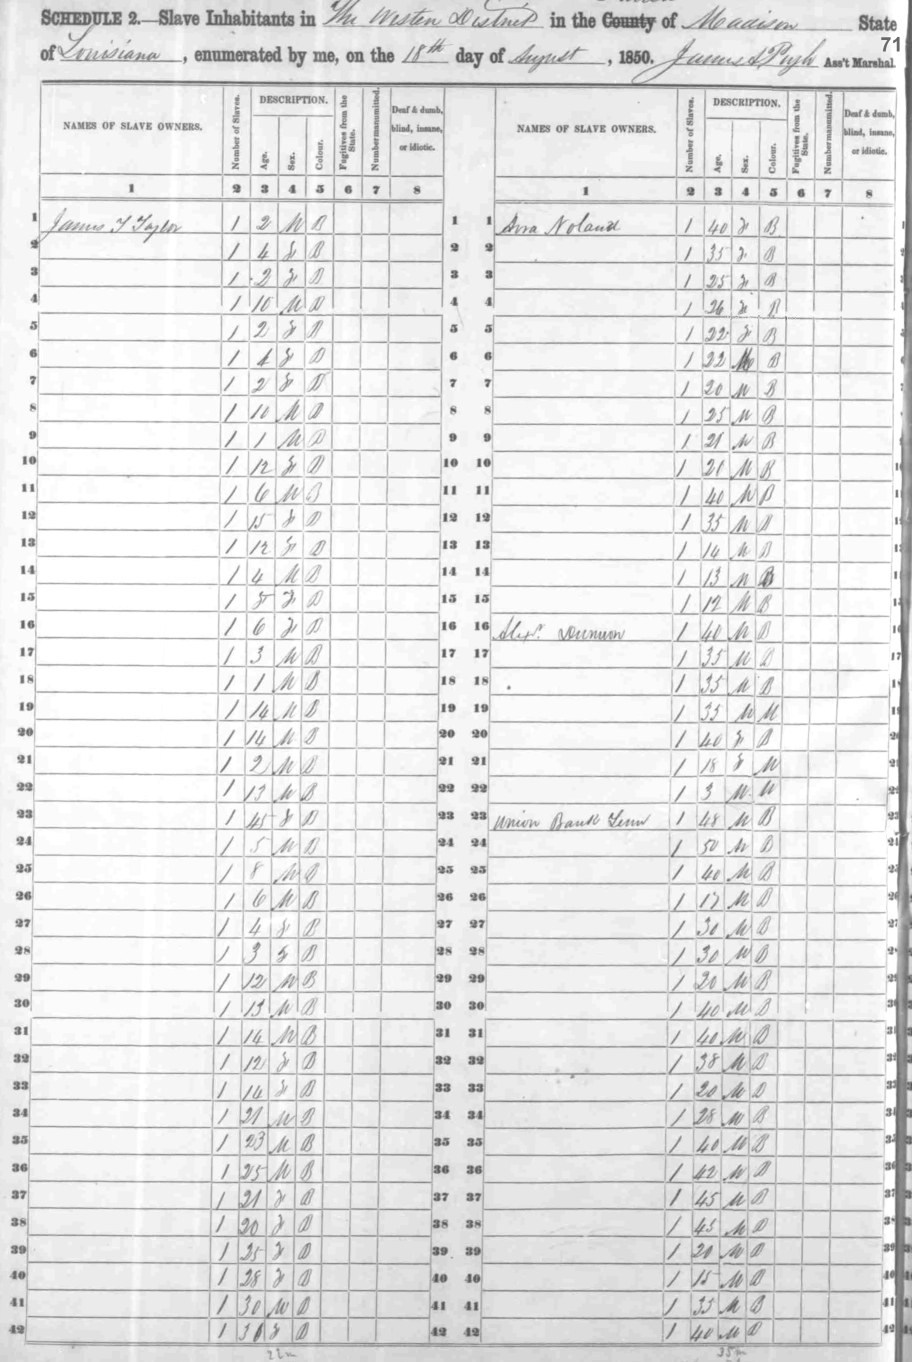 SCHEDULE 2.—Slave Inhabitants in The Western District in the County of Madison State
71
of Louisiana, enumerated by me, on the 18th day of August, 1850. James A Pugh Ass't Marshal.
NAMES OF SLAVE OWNERS. Number of Slaves. DESCRIPTION. Age. Sex. Colour. Fugitives from the State. Number manumitted. Deaf & dumb, blind, insane, or idiotic. NAMES OF SLAVE OWNERS. Number of Slaves. DESCRIPTION. Age. Sex. Colour. Fugitives from the State. Number manumitted. Deaf & dumb, blind, insane, or idiotic.
1 2 3 4 5 6 7 8 1 2 3 4 5 6 7 8
1 James T Taylor 1 2 M B 1 1 Noland 1 40 F B
2 1 4 F B 2 2 1 35 F B
3 1 2 F B 3 3 1 25 F B
4 1 10 M B 4 4 1 26 F B
5 1 2 F B 5 5 1 22 F B
6 1 4 F B 6 6 1 22 M B
7 1 2 F B 7 7 1 20 M B
8 1 10 M B 8 8 1 25 M B
9 1 1 M B 9 9 1 21 M B
10 1 12 F B 10 10 1 20 M B
11 1 6 M B 11 11 1 40 M B
12 1 15 F B 12 12 1 35 M B
13 1 12 F B 13 13 1 14 M B
14 1 4 M B 14 14 1 13 M B
15 1 F B 15 15 1 12 M B
16 1 6 F B 16 16 Alexr. 1 40 M B
17 1 3 M B 17 17 1 35 M B
18 1 1 M B 18 18 1 35 M B
19 1 14 M B 19 19 1 35 M M
20 1 14 M B 20 20 1 40 F B
21 1 2 M B 21 21 1 18 F M
22 1 13 M B 22 22 1 3 M M
23 1 45 F B 23 23 Union Bank Tenn 1 48 M B
24 1 5 M B 24 24 1 50 M B
25 1 8 M B 25 25 1 40 M B
26 1 6 M B 26 26 1 17 M B
27 1 4 F B 27 27 1 30 M B
28 1 3 F B 28 28 1 30 M B
29 1 12 M B 29 29 1 20 M B
30 1 13 M B 30 30 1 40 M B
31 1 14 M B 31 31 1 40 M B
32 1 12 F B 32 32 1 38 M B
33 1 14 F B 33 33 1 20 M B
34 1 21 M B 34 34 1 28 M B
35 1 23 M B 35 35 1 40 M B
36 1 25 M B 36 36 1 42 M B
37 1 21 F B 37 37 1 45 M B
38 1 20 F B 38 38 1 45 M B
39 1 25 F B 39 39 1 20 M B
40 1 28 F B 40 40 1 15 M B
41 1 30 M B 41 41 1 35 M B
42 1 F B 42 42 1 40 M B
22m 35m